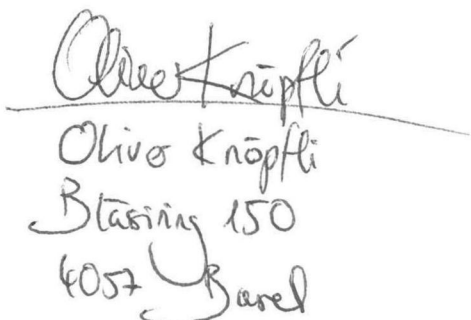 Oliver Knöpfli
Oliver Knöpfli
Bläsiring 150
4057 Basel